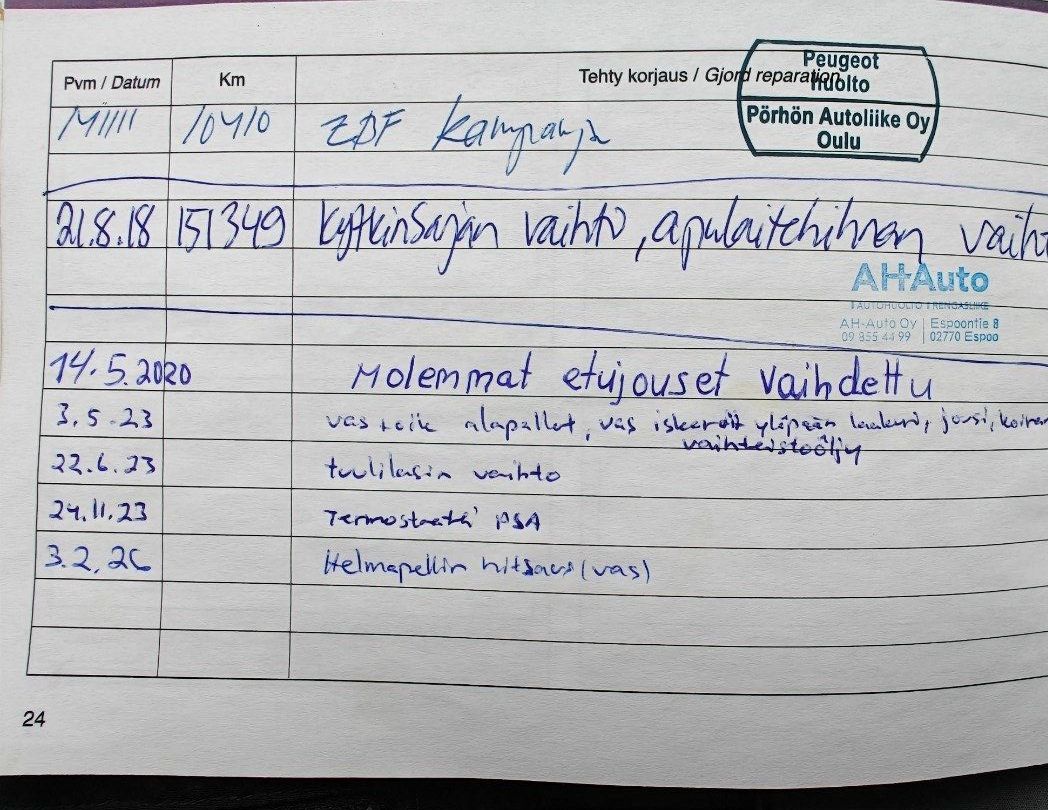 Pvm / Datum Km Tehty korjaus / Gjord reparation
Peugeot
huolto
Pörhön Autoliike Oy
Oulu
10410 ZBF kampanja
21.8.18 151349 Kytkinsarjan vaihto, apulaitehihnan vaiht
AH-Auto
AUTOHUOLTO | RENGASLIIKE
AH-Auto Oy | Espoontie 8
09 855 44 99 | 02770 Espoo
14.5.2020 Molemmat etujouset vaihdettu
3.5.23 vas + oik alapallot, vas iskarit yläpään laakeri, jousi,
vaihteistoöljy
22.6.23 tuulilasin vaihto
24.11.23 Termostaatti PSA
3.2.26 Helmapellin hitsaus (vas)
24